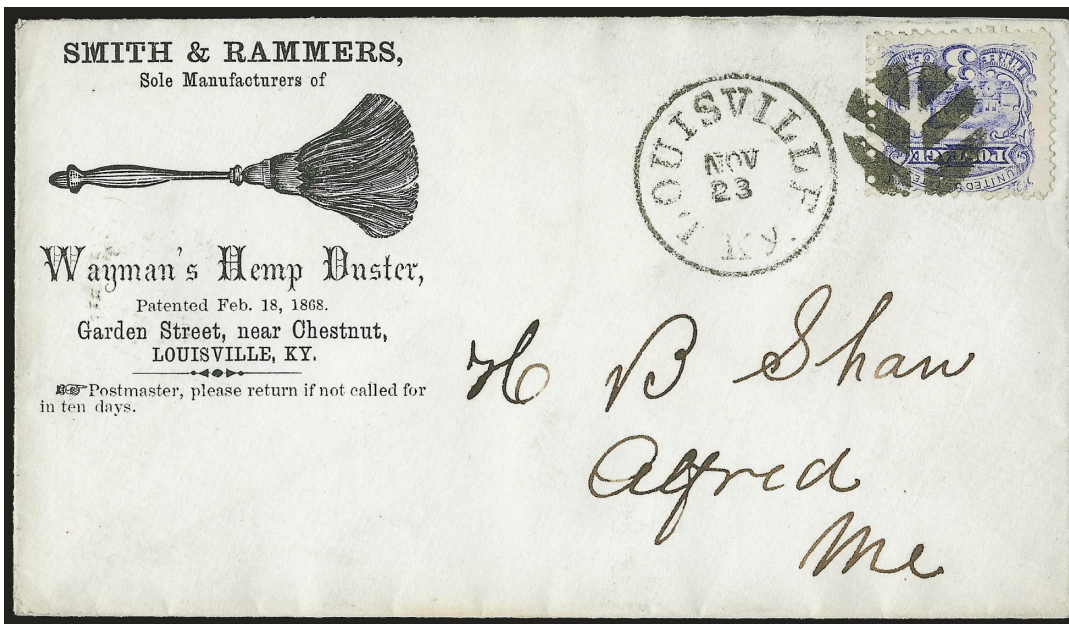 SMITH & RAMMERS,
Sole Manufacturers of
Wayman's Hemp Duster,
Patented Feb. 18, 1868.
Garden Street, near Chestnut,
LOUISVILLE, KY.
Postmaster, please return if not called for
in ten days.
LOUISVILLE KY.
NOV
23
3
POSTAGE
UNITED
H B Shaw
Alfred
Me